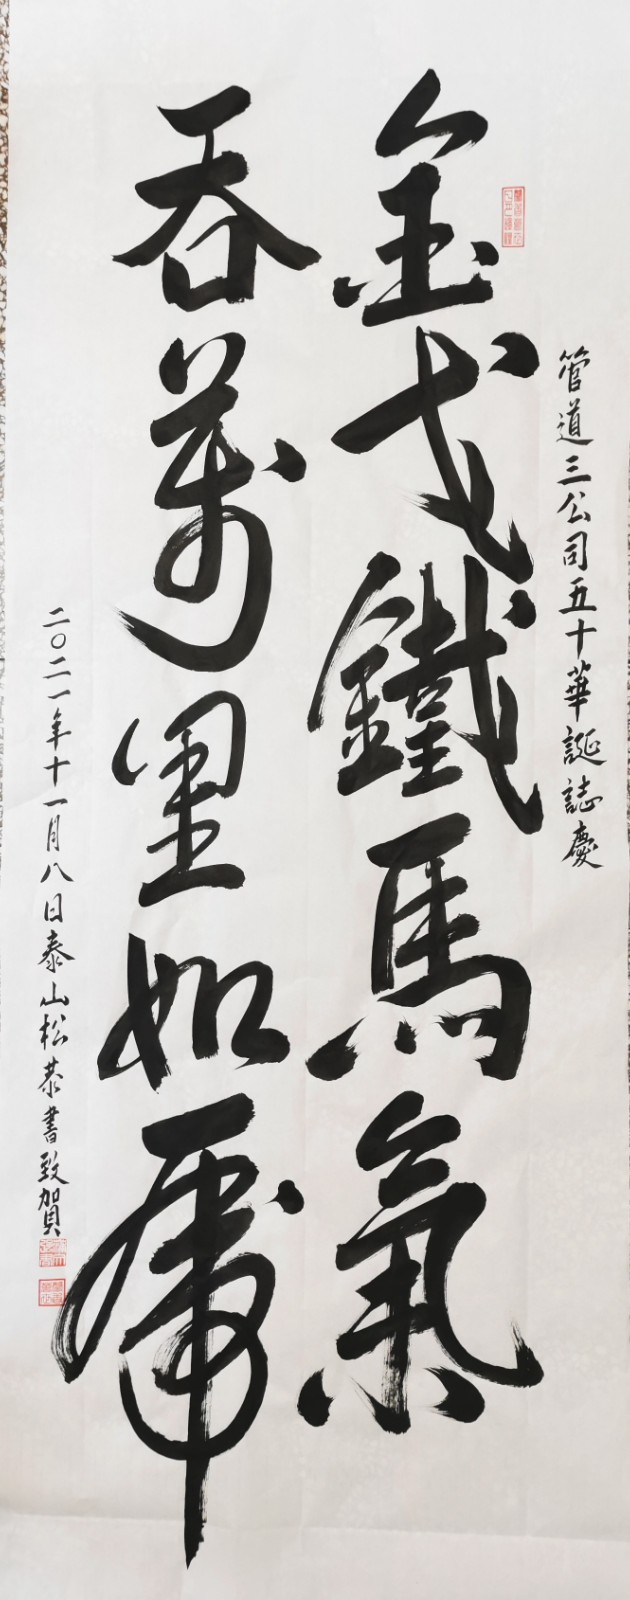 管道三公司五十華誕誌慶
金戈鐵馬氣
吞萬里如虎
二〇二一年十一月八日泰山松恭書致賀